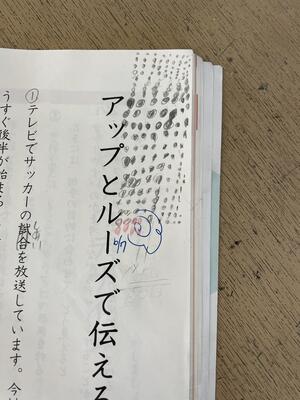 アップとルーズで伝える
① テレビでサッカーの試合を放送しています。今は
しあい
うすぐ後半が始まろ